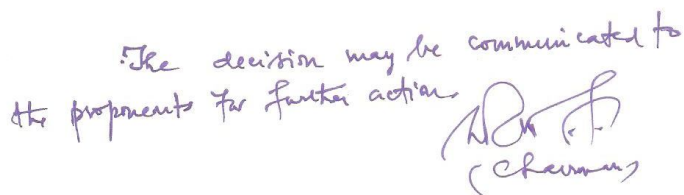 The decision may be communicated to
the proponents for further action.
(Chairman)